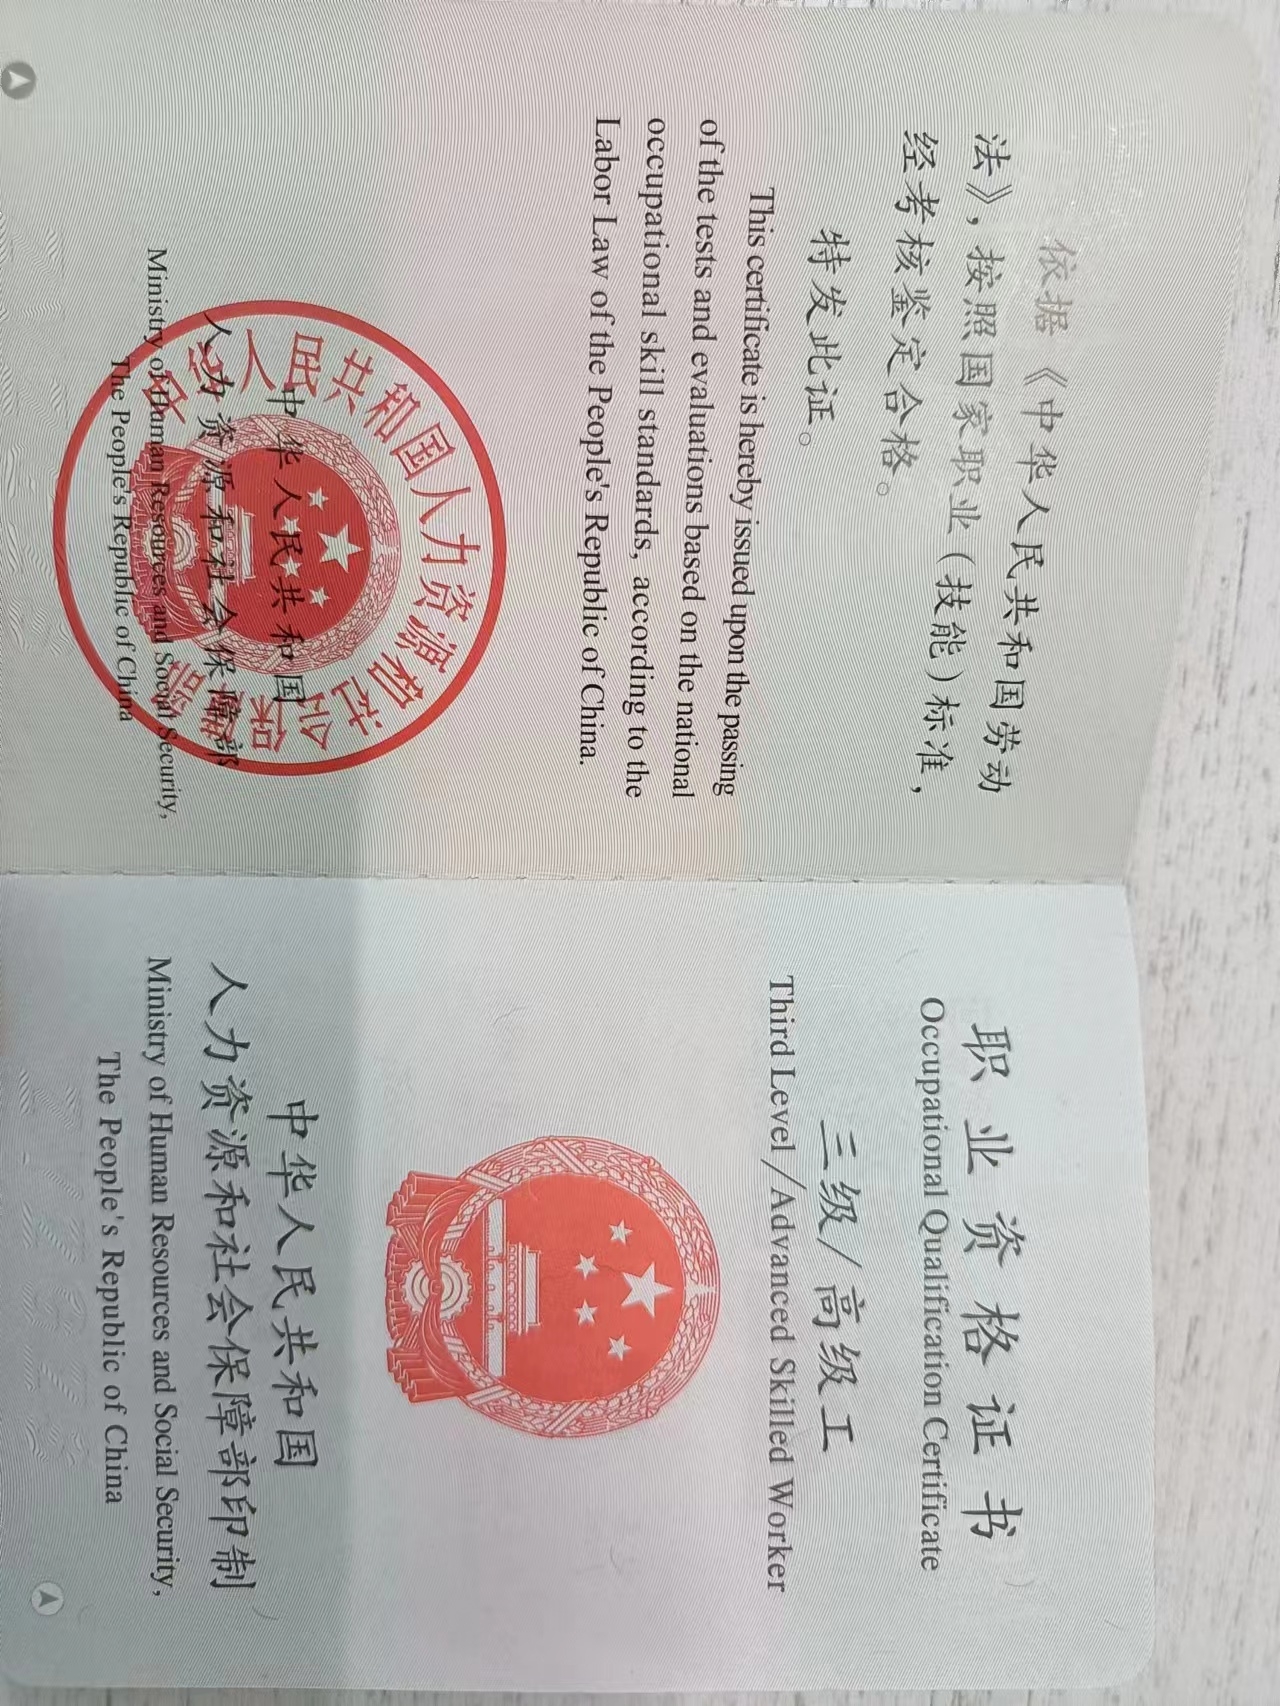 依据《中华人民共和国劳动
法》，按照国家职业（技能）标准，
经考核鉴定合格。
特发此证。
This certificate is hereby issued upon the passing
of the tests and evaluations based on the national
occupational skill standards, according to the
Labor Law of the People's Republic of China.
中华人民共和国人力资源和社会保障部
中华人民共和国
人力资源和社会保障部
Ministry of Human Resources and Social Security,
The People's Republic of China
职业资格证书
Occupational Qualification Certificate
三级/高级工
Third Level/Advanced Skilled Worker
中华人民共和国
人力资源和社会保障部印制
Ministry of Human Resources and Social Security,
The People's Republic of China